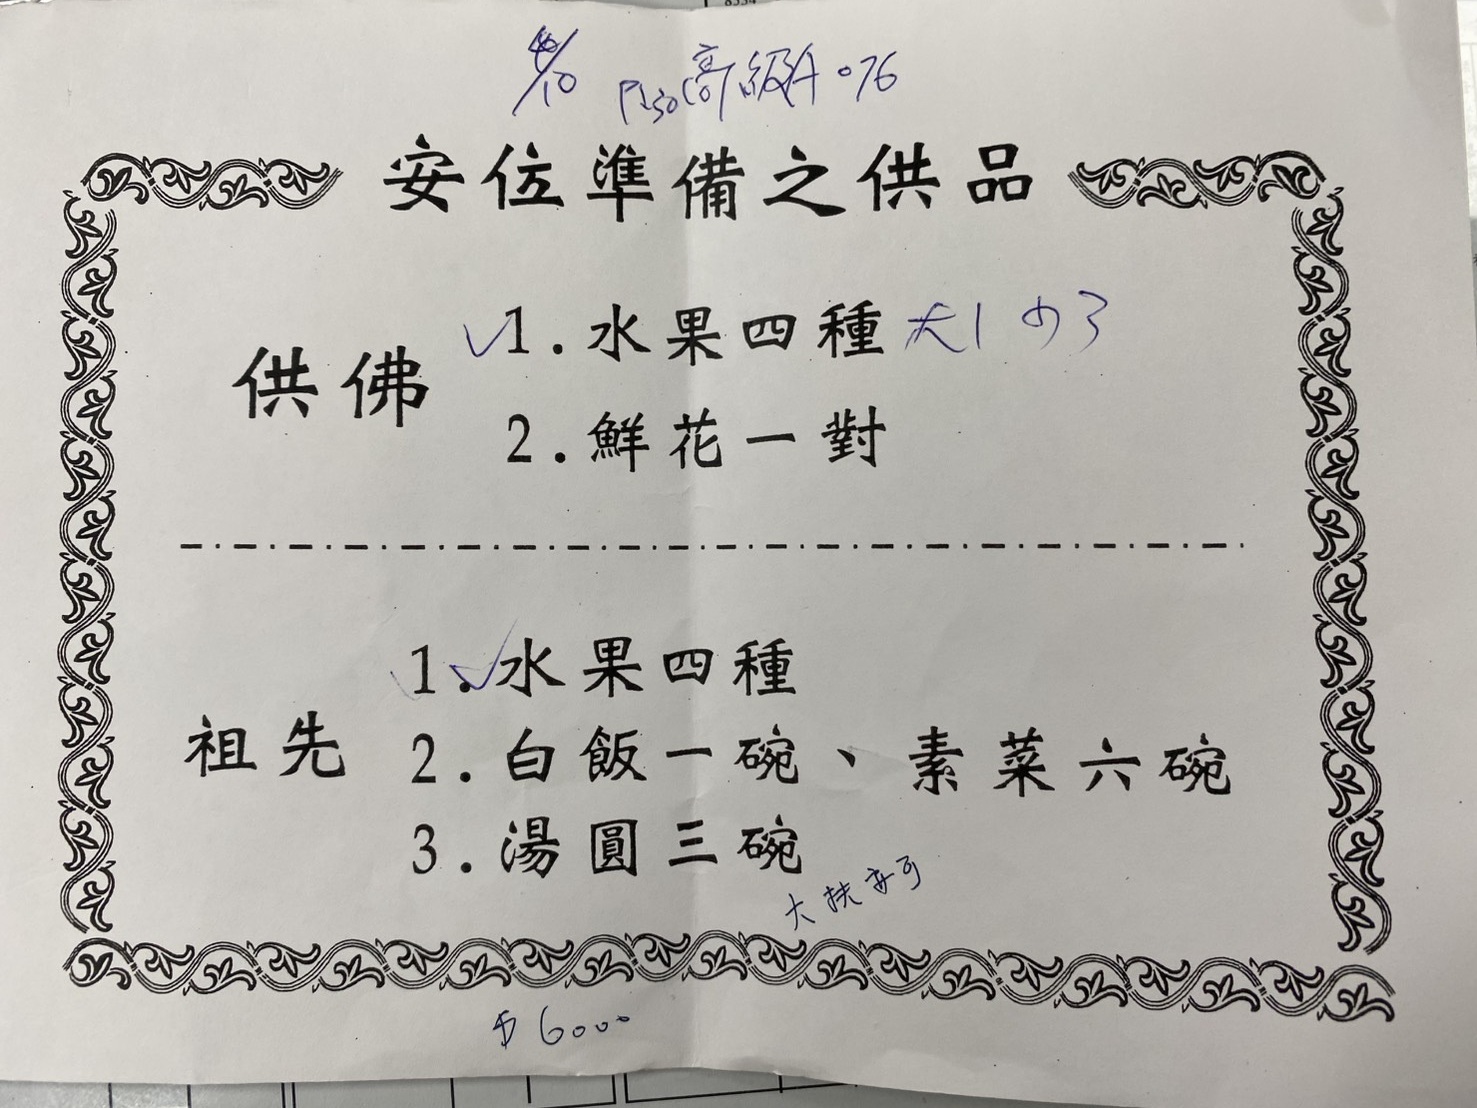 4/10 P130 高級A076
安位準備之供品
供佛
1.水果四種 大1 中3
2.鮮花一對
祖先
1.水果四種
2.白飯一碗、素菜六碗
3.湯圓三碗
$6000